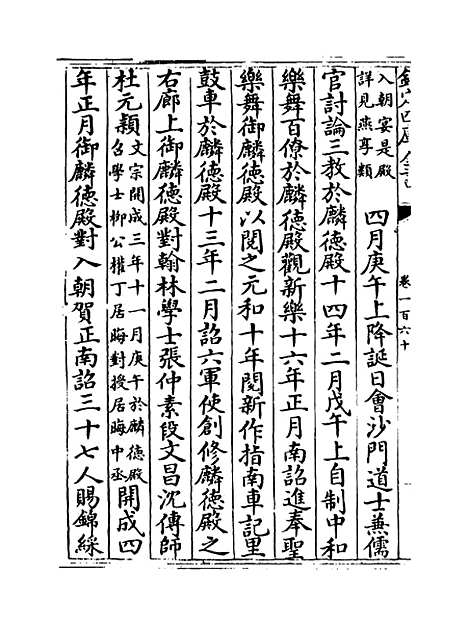 欽定四庫全書
卷一百六十
入朝宴是殿
詳見燕享類
四月庚午上降誕日會沙門道士兼儒
官討論三教於麟徳殿十四年二月戊午上自制中和
樂舞百僚於麟徳殿觀新樂十六年正月南詔進奉聖
樂舞御麟徳殿以閱之元和十年閱新作指南車記里
鼓車於麟徳殿十三年二月詔六軍使創修麟徳殿之
右廊上御麟徳殿對翰林學士張仲素段文昌沈傳師
杜元穎
文宗開成三年十一月庚午於麟徳殿
召學士柳公權丁居晦對授居晦中丞
開成四
年正月御麟徳殿對入朝賀正南詔三十七人賜錦綵